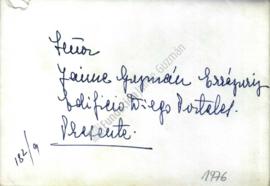 Señor
Jaime Guzmán Errázuriz
Edificio Diego Portales.
Presente.
182/9
1976